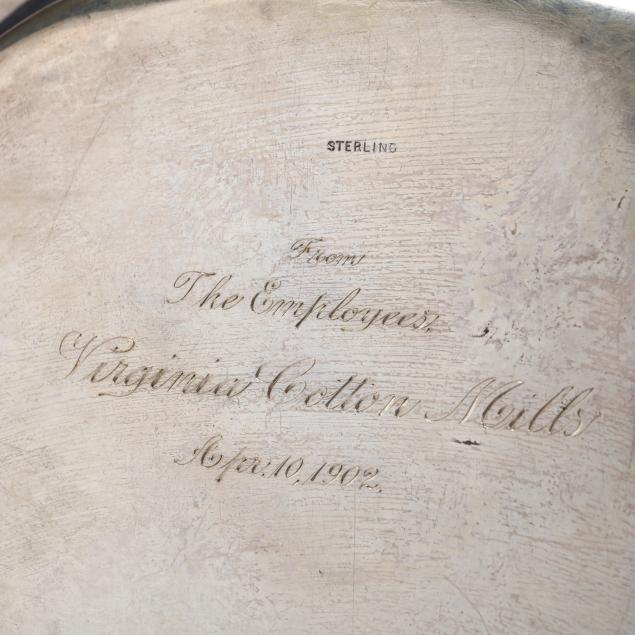 STERLING
From
The Employees,
Virginia Cotton Mills
Apr. 10, 1902.